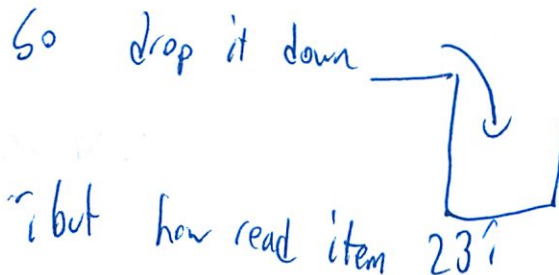 So drop it down
¿but how read item 23?